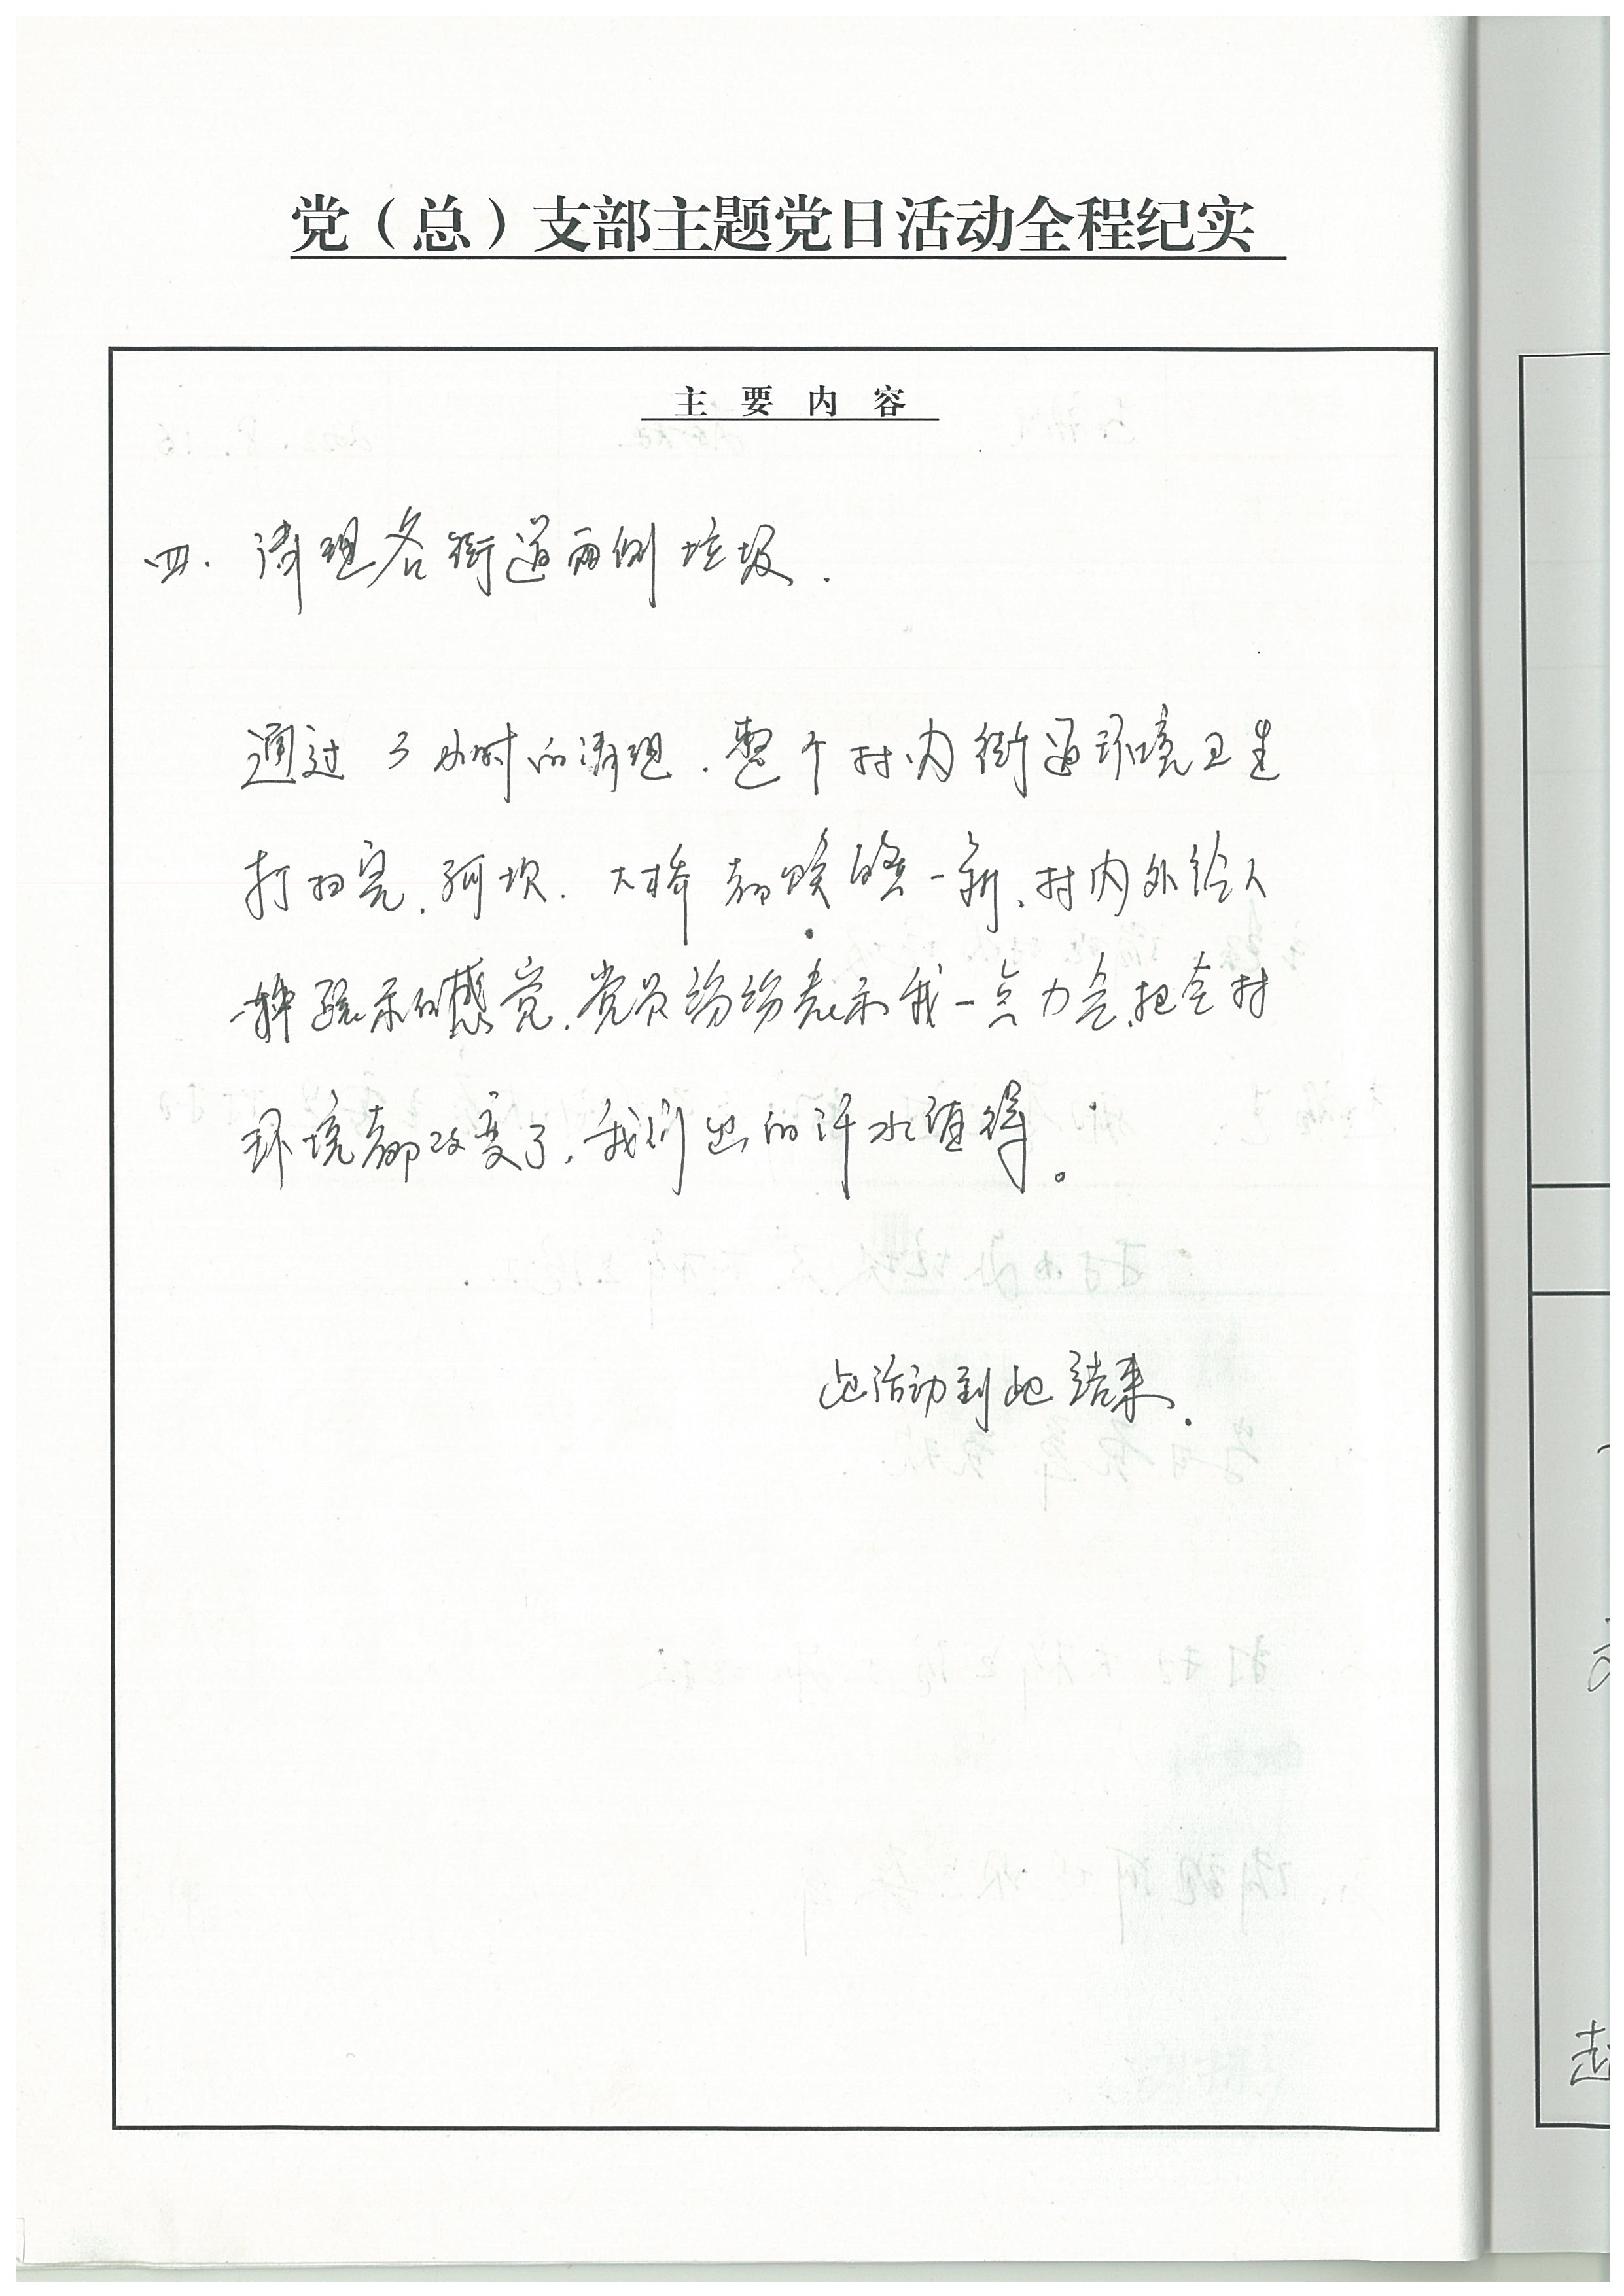 党（总）支部主题党日活动全程纪实
主要内容
四.清理各街道两侧垃圾.
通过3小时的清理.整个村内街道环境卫生
打扫完.河坝.大桥都焕然一新.村内外给人
一种的感觉.党员纷纷表示我一点力会把全村
环境都改变了,我们出的汗水值得。
此活动到此结束.